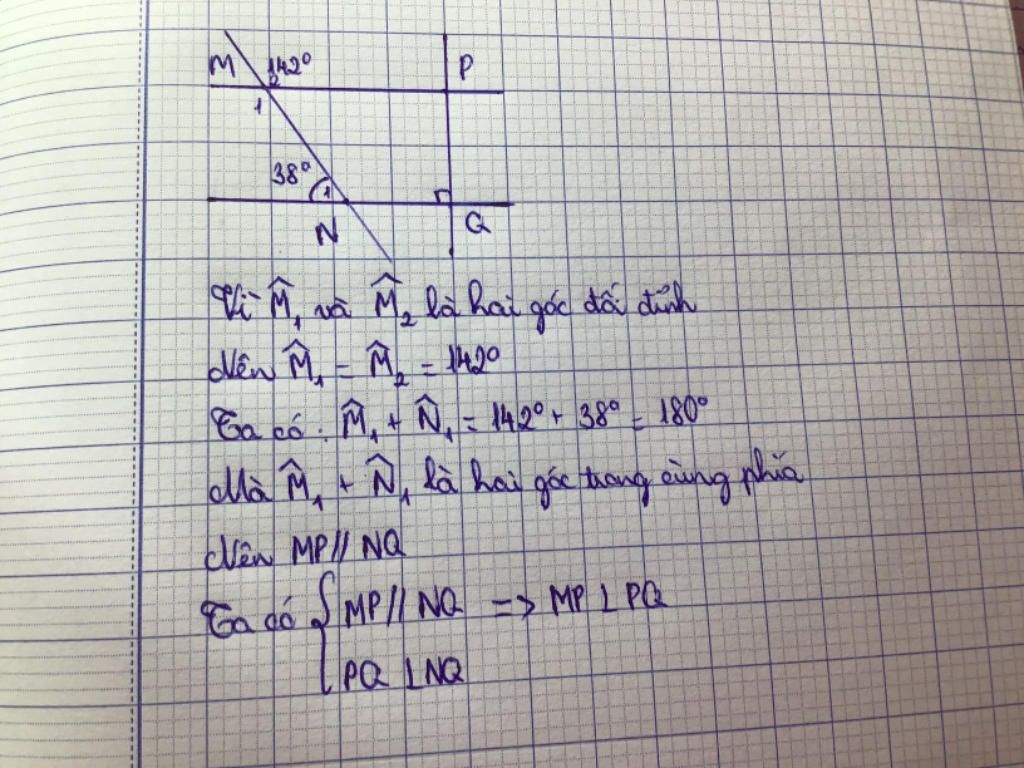 M 142° P
2
1
38°
1
N Q
Vì M̂₁ và M̂₂ là hai góc đối đỉnh
Nên M̂₁ = M̂₂ = 142°
Ta có: M̂₁ + N̂₁ = 142° + 38° = 180°
Mà M̂₁ + N̂₁ là hai góc trong cùng phía
Nên MP // NQ
Ta có { MP // NQ => MP ⊥ PQ
PQ ⊥ NQ